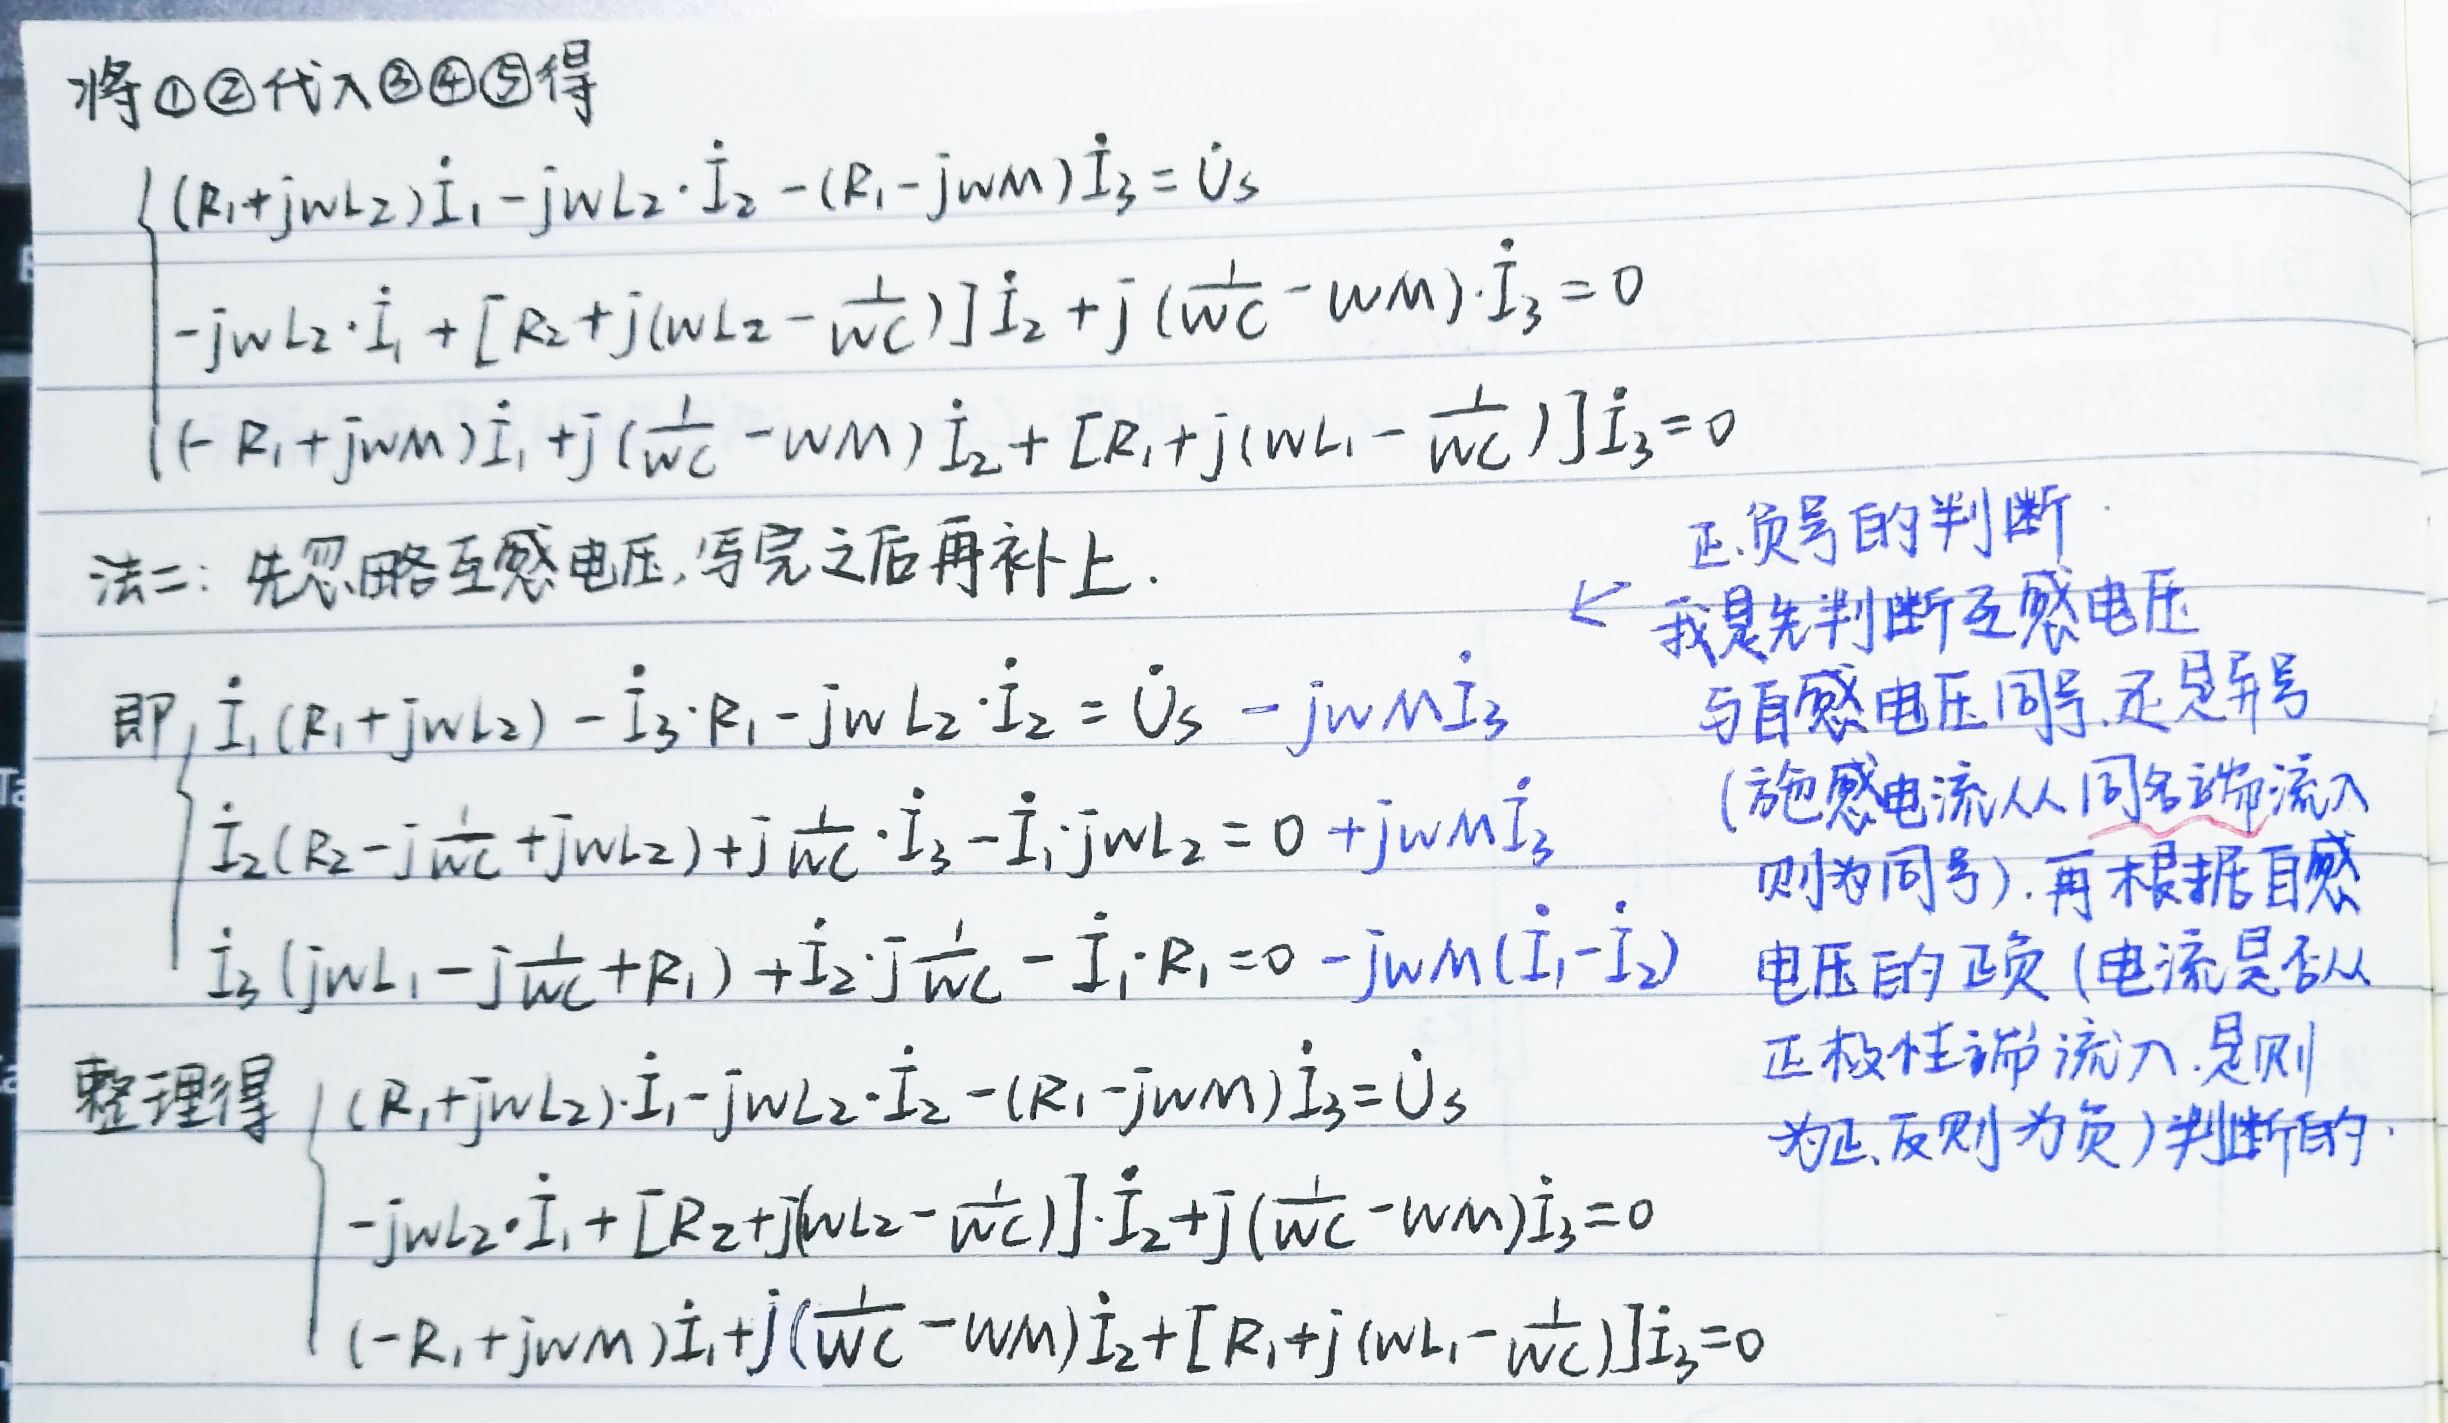 将①②代入③④⑤得
(R₁+jwL₂)İ₁-jwL₂·İ₂-(R₁-jwM)İ₃=U̇s
-jwL₂·İ₁+[R₂+j(wL₂-1/wC)]İ₂+j(1/wC-wM)·İ₃=0
(-R₁+jwM)İ₁+j(1/wC-wM)İ₂+[R₁+j(wL₁-1/wC)]İ₃=0
法二:先忽略互感电压,写完之后再补上.
即,İ₁(R₁+jwL₂)-İ₃·R₁-jwL₂·İ₂=U̇s-jwMİ₃
İ₂(R₂-j1/wC+jwL₂)+j1/wC·İ₃-İ₁·jwL₂=0+jwMİ₃
İ₃(jwL₁-j1/wC+R₁)+İ₂·j1/wC-İ₁·R₁=0-jwM(İ₁-İ₂)
正.负号的判断.
← 我是先判断互感电压
与自感电压同号.还是异号
(施感电流从同名端流入
则为同号).再根据自感
电压的正负(电流是否从
正极性端流入.是则
为正、反则为负)判断的.
整理得 (R₁+jwL₂)·İ₁-jwL₂·İ₂-(R₁-jwM)İ₃=U̇s
-jwL₂·İ₁+[R₂+j(wL₂-1/wC)]·İ₂+j(1/wC-wM)İ₃=0
(-R₁+jwM)İ₁+j(1/wC-wM)İ₂+[R₁+j(wL₁-1/wC)]İ₃=0